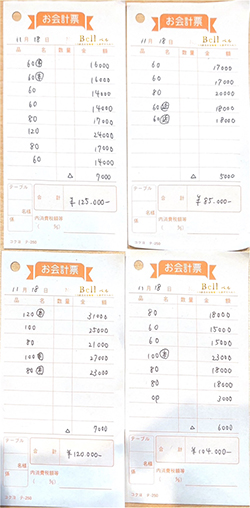 お会計票
11月 18日
Bell ベル
品 名 数量 金 額
60 16000
60 16000
60 14000
60 14000
80 17000
120 24000
80 17000
60 14000
△ 7000
テーブル
名様
係
合 計 ¥125.000-
内消費税額等
( N)
お会計票
11月 18日
Bell ベル
品 名 数量 金 額
60 17000
60 17000
80 20000
60 18000
60 18000
△ 5000
テーブル
名様
係
合 計 ¥85.000-
内消費税額等
( N)
お会計票
11月 18日
Bell ベル
品 名 数量 金 額
120 31000
100 25000
80 21000
100 27000
80 23000
△ 7000
テーブル
名様
係
合 計 ¥120.000-
内消費税額等
( N)
お会計票
11月 18日
Bell ベル
品 名 数量 金 額
80 18000
60 15000
60 15000
100 23000
80 18000
80 18000
op 3000
△ 6000
テーブル
名様
係
合 計 ¥104.000-
内消費税額等
( N)